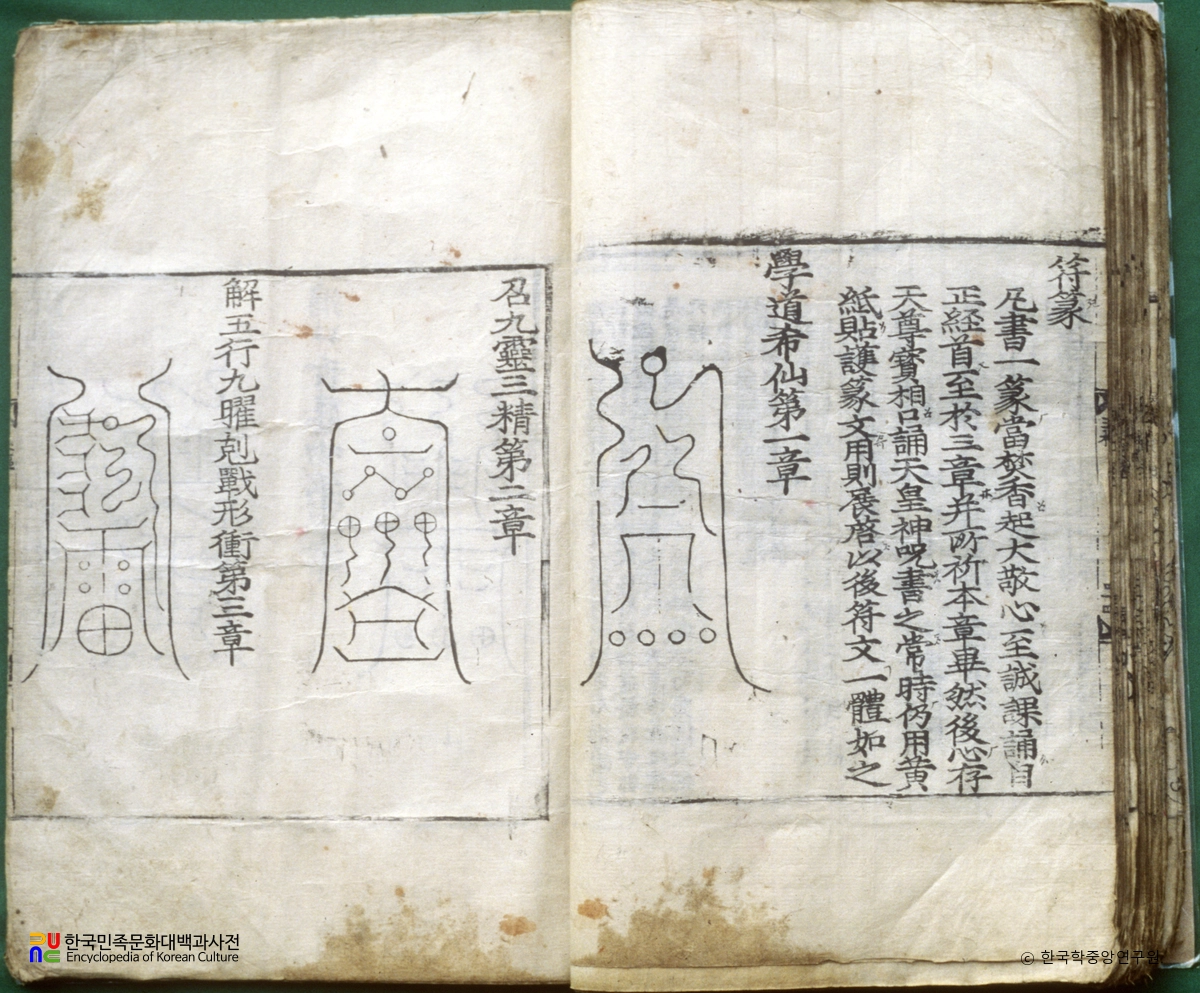 符篆
凡書一篆當焚香起大敬心至誠課誦自
正経首至於三章幷所祈本章畢然後心存
天尊寶相口誦天皇神呪書之常時仍用黄
紙貼護篆文用則展啓以後符文一體如之
學道希仙第一章
召九靈三精第二章
解五行九曜剋戰形衝第三章
한국민족문화대백과사전
Encyclopedia of Korean Culture
© 한국학중앙연구원